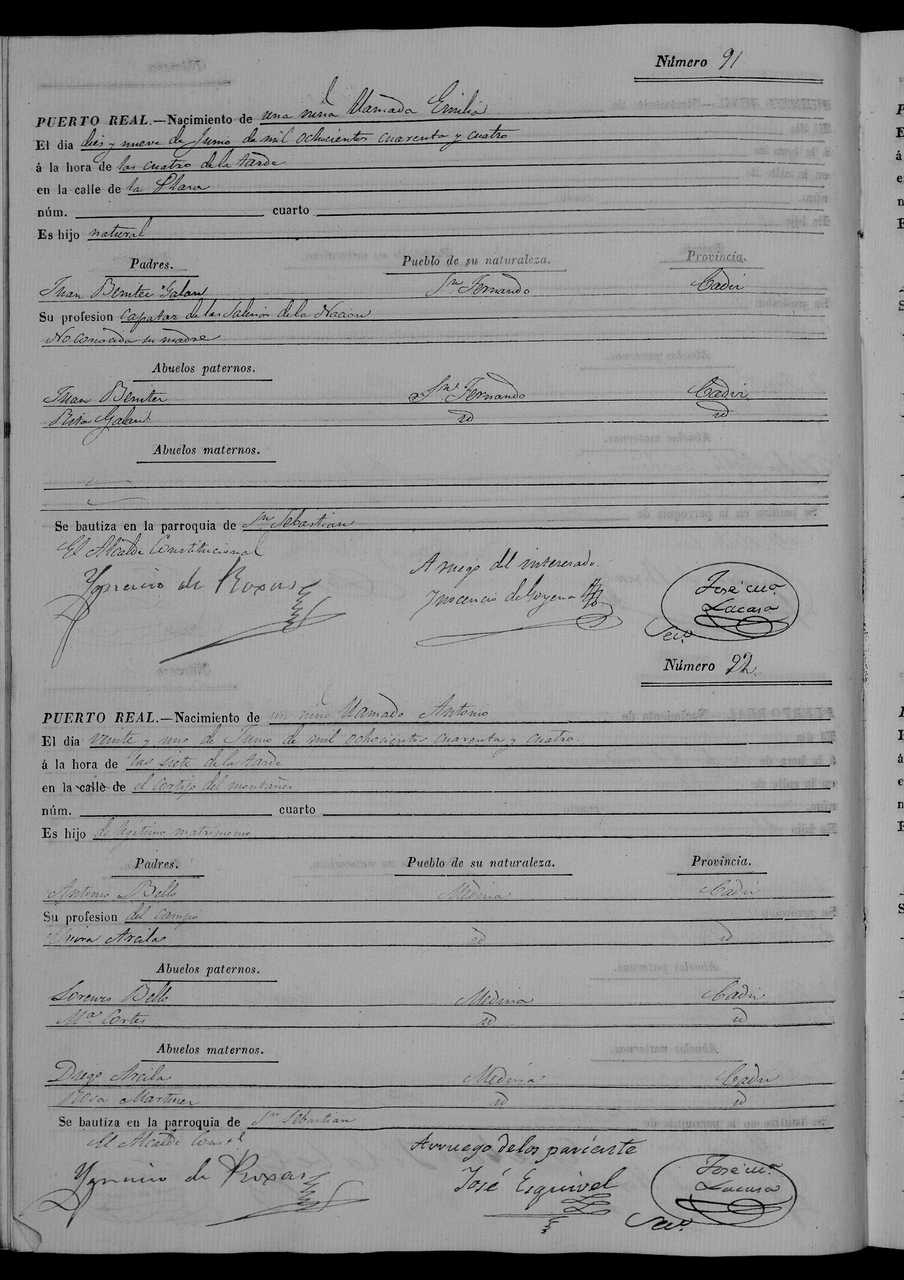 Número 91
PUERTO REAL.—Nacimiento de una niña llamada Emilia
El dia dies y nueve de Junio de mil ochocientos cuarenta y cuatro
á la hora de las cuatro de la tarde
en la calle de la Plaza
núm. cuarto
Es hijo natural
Padres. Pueblo de su naturaleza. Provincia.
Juan Benitez Galan Sn Fernando Cadiz
Su profesion capataz de las Salinas de la Nacion
No conocida su madre
Abuelos paternos.
Juan Benitez Sn Fernando Cadiz
Rita Galan id id
Abuelos maternos.
Se bautiza en la parroquia de Sn Sebastian
El Alcalde Constitucional
Ygnacio de Roxas
A ruego del interesado
Inocencio de Goyena
José Lacasa
Seco.
Número 92
PUERTO REAL.—Nacimiento de un niño llamado Antonio
El dia veinte y uno de Junio de mil ochocientos cuarenta y cuatro
á la hora de las siete de la tarde
en la calle de el Cortijo del montañes
núm. cuarto
Es hijo de legitimo matrimonio
Padres. Pueblo de su naturaleza. Provincia.
Antonio Bello Medina Cadiz
Su profesion del Campo
Arcila id id
Abuelos paternos.
Lorenzo Bello Medina Cadiz
Ma Cortes id id
Abuelos maternos.
Diego Arcila Medina Cadiz
Rosa Martinez id id
Se bautiza en la parroquia de Sn Sebastian
El Alcalde Const.l
Ygnacio de Roxas
Arruego delos pariente
José Esquivel
José Lacasa
Seco.